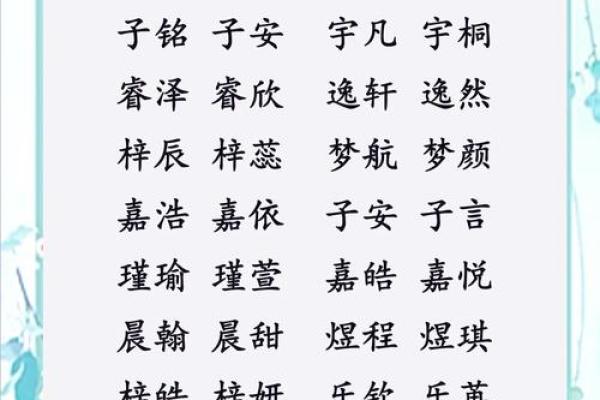 子铭 子安 宇凡 宇桐
睿泽 睿欣 逸轩 逸然
梓辰 梓蕊 梦航 梦颜
嘉浩 嘉依 子安 子言
瑾瑜 瑾萱 嘉皓 嘉悦
晨翰 晨甜 煜程 煜琪
梓皓 梓妍 乐钦